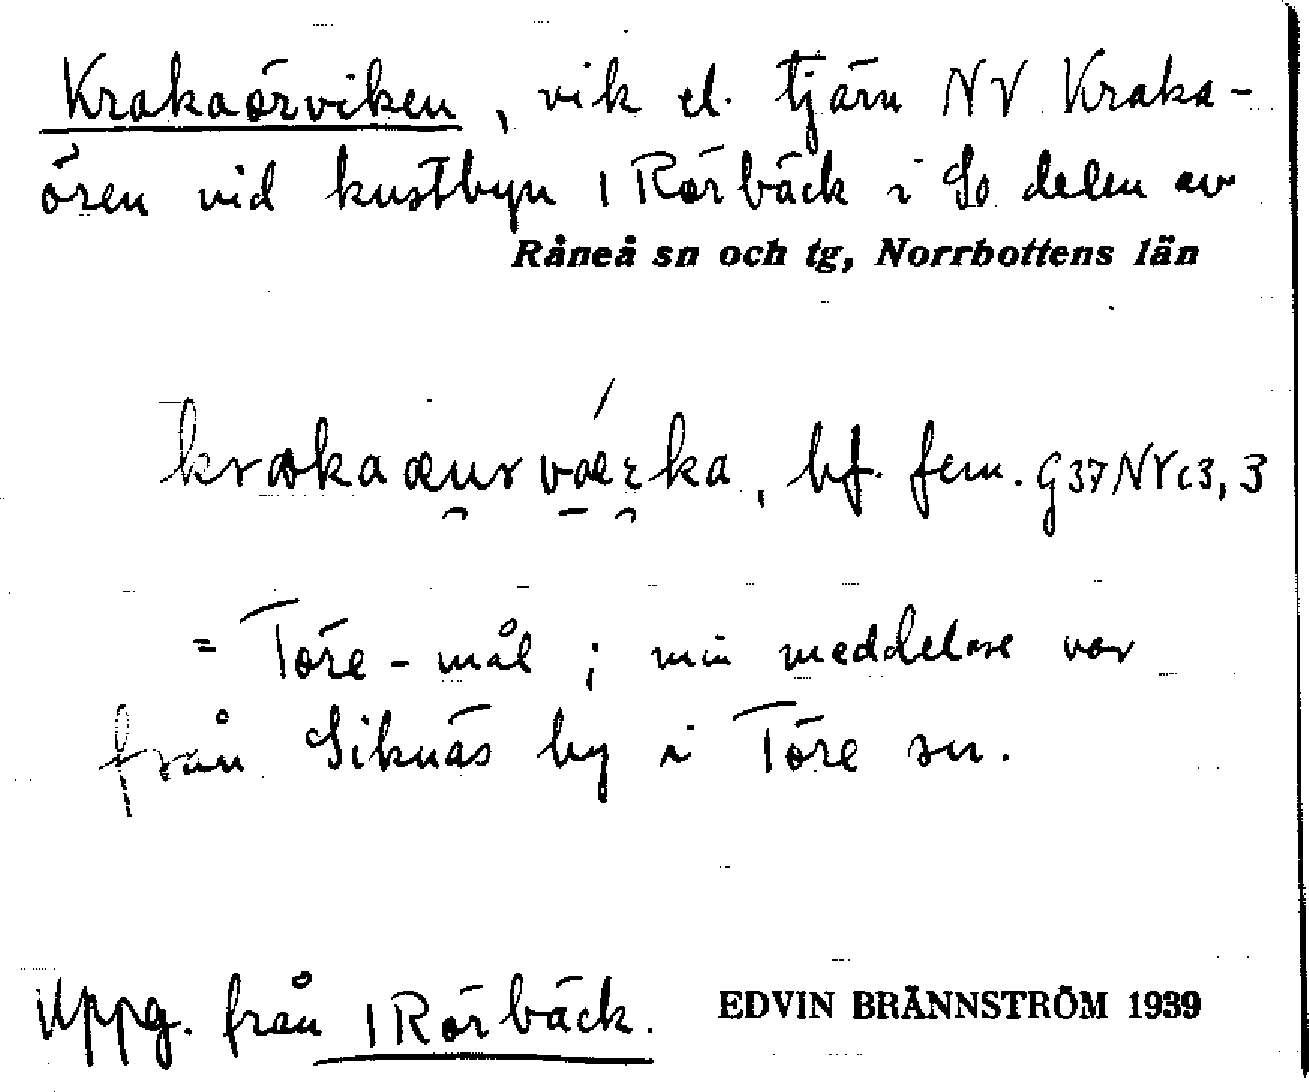 Krakaörviken, vik el. tjärn NV Kraka-
ören vid kustbyn 1 Rörbäck i So delen av
Råneå sn och tg, Norrbottens län
bf. fem. G37NVc3, 3
= Töre-mål; min meddelare var
från Siknäs by i Töre sn.
Uppg. från 1 Rörbäck.
EDVIN BRÄNNSTRÖM 1939